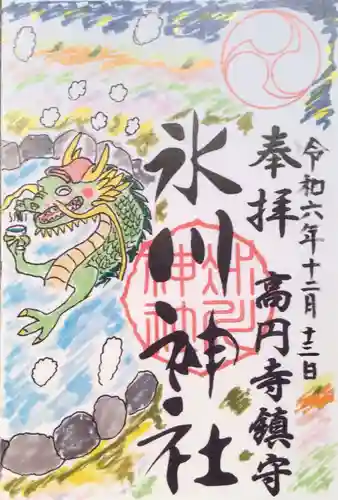 令和六年十二月十二日
奉拝 高円寺鎮守
氷川神社